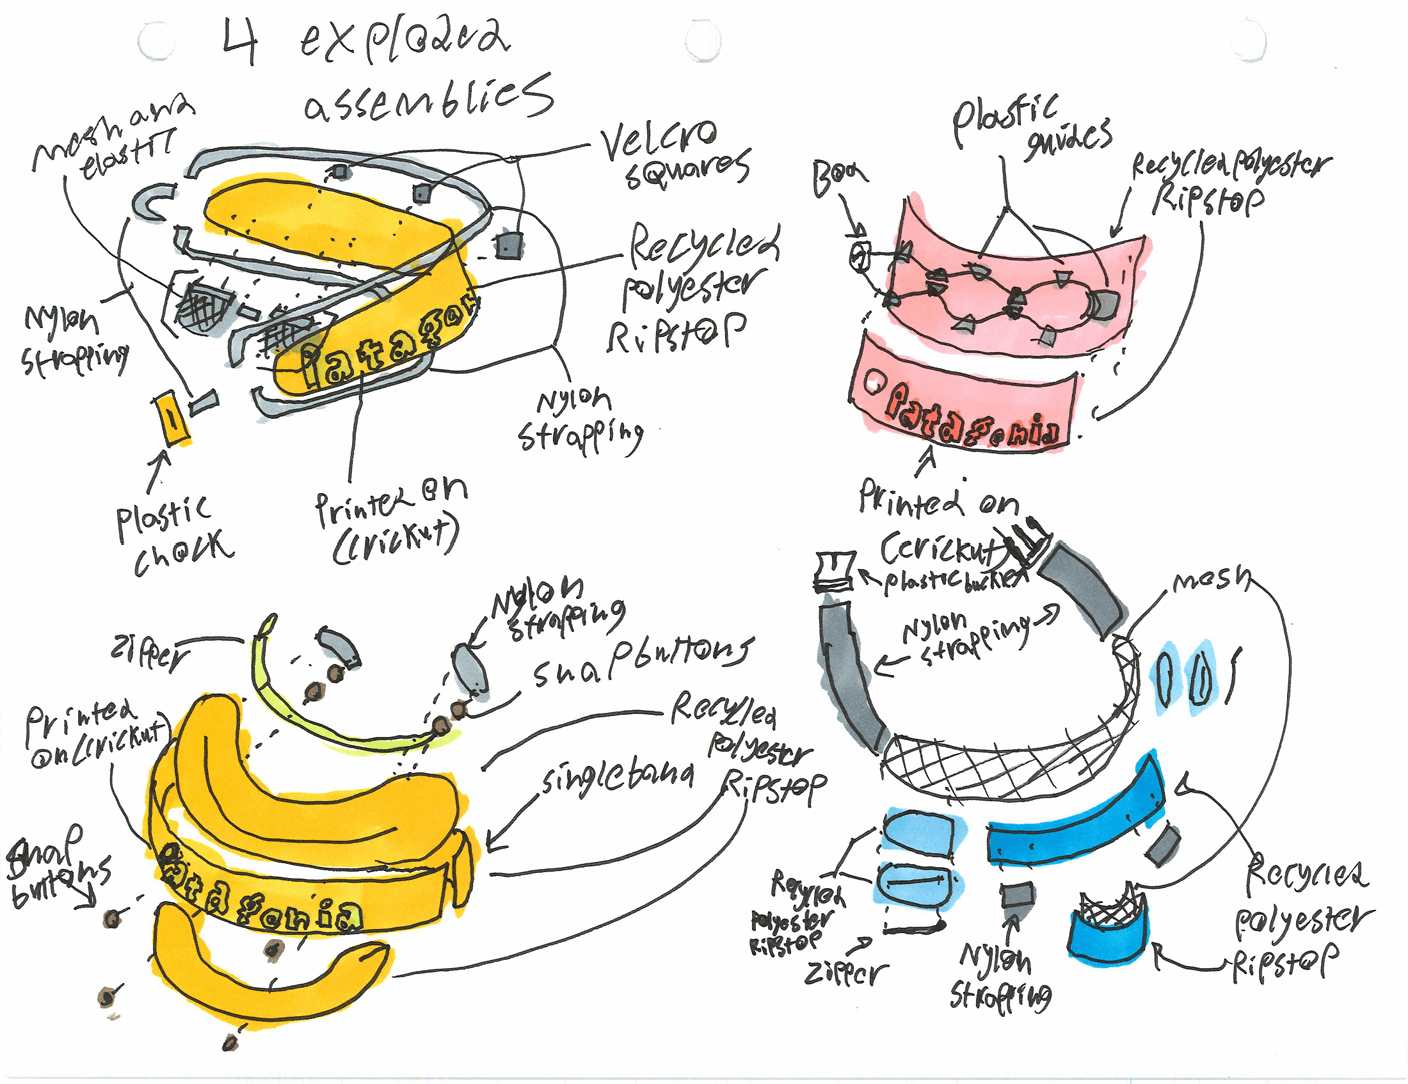 4 explo2d2
assemblies
mesh and
elastic
Velcro
squares
Recycled
polyester
Ripstop
Nylon
strapping
Patagon
Nylon
strapping
Plastic
chock
Printed on
(crickut)
Plastic
guides
Boa
Recycled polyester
Ripstop
Patagonia
Printed on
(crickut)
plastic buckle
Nylon
strapping
mesh
zipper
Nylon
strapping
snap buttons
Printed
on (crickut)
Recycled
polyester
Ripstop
single band
Snap
buttons
Patagonia
Recycled
polyester
Ripstop
zipper
Nylon
strapping
Recycled
polyester
Ripstop